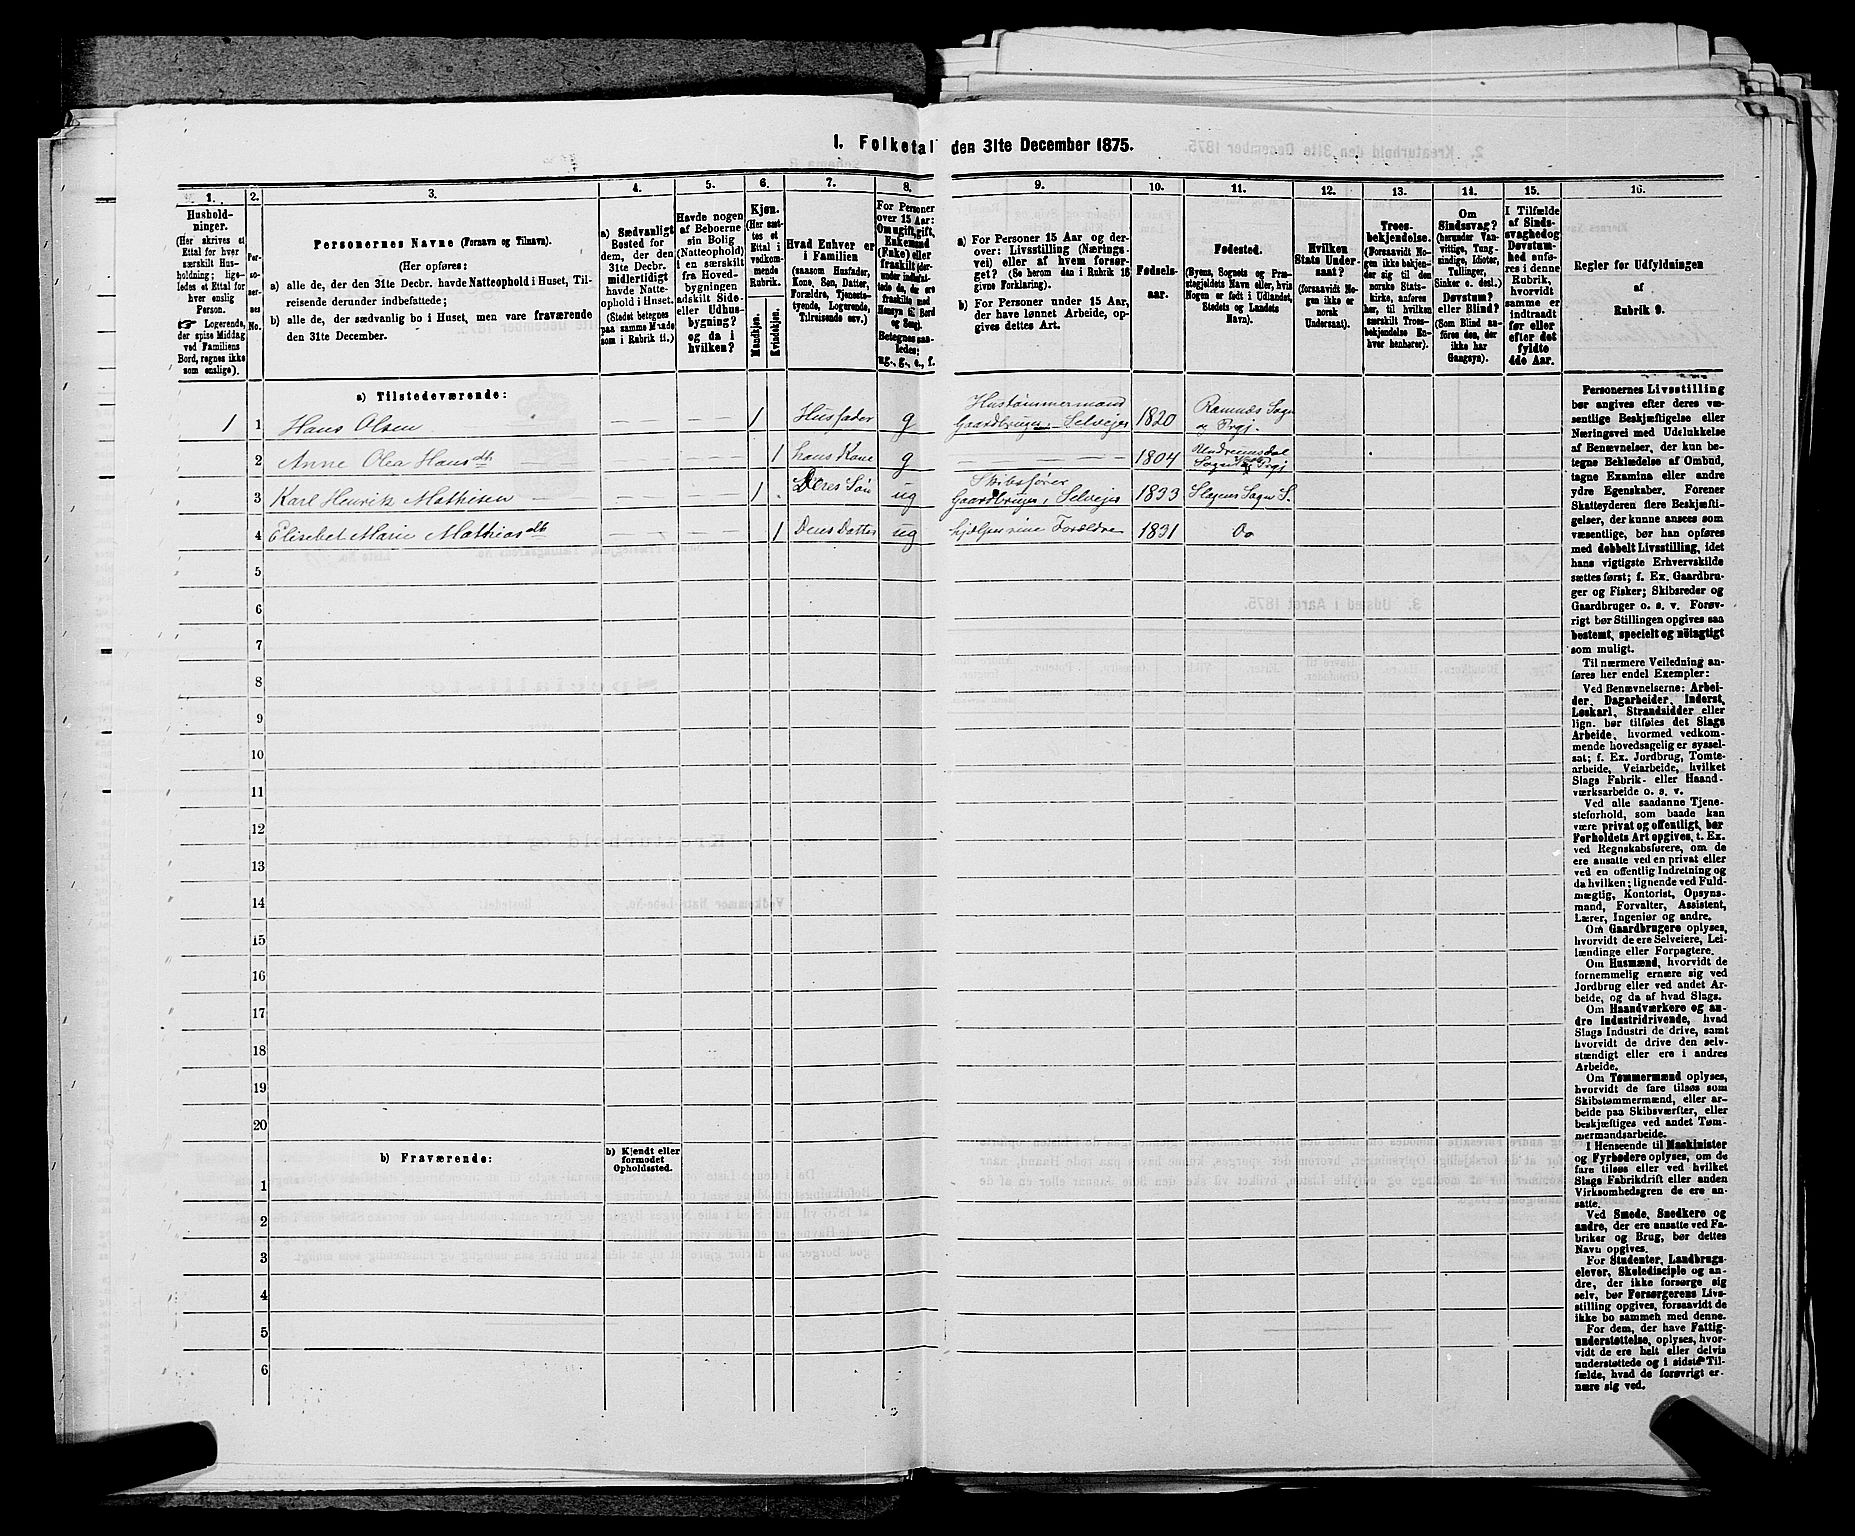 I. Folketal den 31te December 1875.
1.
Hushold-
ninger.
(Her skrives et
Ettal for hver
særskilt Hus-
holdning; lige-
ledes et Ettal for
hver enslig
Person.
☞ Logerende,
der spise Middag
ved Familiens
Bord, regnes ikke
som enslige).
2.
Per-
so-
ner-
nes
No.
3.
Personernes Navne (Fornavn og Tilnavn).
(Her opføres:
a) alle de, der den 31te Decbr. havde Natteophold i Huset, Til-
reisende derunder indbefattede;
b) alle de, der sædvanlig bo i Huset, men vare fraværende
den 31te December.
4.
a) Sædvanligt
Bosted for
dem, der den
31te Decbr.
midlertidigt
havde Natte-
ophold i Huset.
(Stedet betegnes
paa samme Maade
som i Rubrik 11.)
5.
Havde nogen
af Beboerne
sin Bolig
(Natteophold)
i en særskilt
fra Hoved-
bygningen
adskilt Side-
eller Udhus-
bygning?
og da i
hvilken?
6.
Kjøn.
(Her sæt-
tes et
Ettal i
vedkom-
mende
Rubrik.
Mandkjøn.
Kvindekjøn.
7.
Hvad Enhver er
i Familien
(saasom Husfader,
Kone, Søn, Datter,
Forældre, Tjeneste-
tyende, Logerende,
Tilreisende osv.)
8.
For Personer
over 15 Aar:
Om ugift, gift,
Enkemand
(Enke) eller
fraskilt
Betegnes saa-
ledes:
ug., g., e., f.
9.
a) For Personer 15 Aar og der-
over: Livsstilling (Nærings-
vei) eller af hvem forsør-
get? (Se herom den i Rubrik 16
givne Forklaring).
b) For Personer under 15 Aar,
der have lønnet Arbeide, op-
gives dettes Art.
10.
Fødsels-
aar.
11.
Fødested.
(Byens, Sognets og Præ-
stegjeldets Navn eller, hvis
Nogen er født i Udlandet,
Stedets og Landets
Navn).
12.
Hvilken
Stats Under-
saat?
(forsaavidt No-
gen ikke er
norsk
Undersaat).
13.
Troes-
bekjendelse.
(Forsaavidt No-
gen ikke bekjen-
der sig til den
norske Stats-
kirke, anføres
her, til hvilken
særskilt Troes-
bekjendelse En-
hver henhører).
14.
Om
Sindssvag?
(herunder Van-
vittige, Tung-
sindige, Idioter,
Tullinger,
Sinker o. desl.)
Døvstum?
eller Blind?
(Som Blind an-
føres den, der
ikke har
Gangsyn).
15.
I Tilfælde
af Sinds-
svaghed og
Døvstum-
hed anfø-
res i denne
Rubrik,
hvorvidt
samme er
indtraadt
før eller
efter det
fyldte
4de Aar.
16.
Regler for Udfyldningen
af
Rubrik 9.
a) Tilstedeværende:
1 1 Hans Olsen — — — 1 Husfader g Hustømmermand
Gaardbruger, Selveier 1820 Ramnæs Sogn
og Prgj.
2 Anne Olea Hansdt — — 1 hans Kone g — — — 1804 Undrumsdal
Sogn Prgj
3 Karl Henrik Mathisen — — 1 Deres Søn ug Skibsfører
Gaardbruger, Selveier 1833 Slagens Sogn S.
4 Elisebet Marie Mathiasdt 1 Deres Datter ug hjelper sine Forældre 1831 Do
5
6
7
8
9
10
11
12
13
14
15
16
17
18
19
20
b) Fraværende:
b) Kjendt eller
formodet
Opholdssted.
1
2
3
4
5
6
Personernes Livsstilling
bør angives efter deres væ-
sentlige Beskjæftigelse eller
Næringsvei med Udelukkelse
af Benævnelser, der kun be-
tegne Beklædelse af Ombud,
tagne Examina eller andre
ydre Egenskaber. Forener
Skatteyderen flere Beskjæfti-
gelser, der kunne ansees som
væsentlige, bør han opføres
med dobbelt Livsstilling, idet
hans vigtigste Erhvervskilde
sættes først; f. Ex. Gaardbru-
ger og Fisker; Skibsreder og
Gaardbruger o. s. v. Forøv-
rigt bør Stillingen opgives saa
bestemt, specielt og nöiagtigt
som muligt.
Til nærmere Veiledning an-
føres her endel Exempler:
Ved Benævnelserne: Arbei-
der, Dagarbeider, Inderst,
Løskarl, Strandsidder eller
lign. bør tilføies det Slags
Arbeide, hvormed vedkom-
mende hovedsagelig er syssel-
sat; f. Ex. Jordbrug, Tomte-
arbeide, Veiarbeide, hvilket
Slags Fabrik- eller Haand-
værksarbeide o. s. v.
Ved alle saadanne Tjene-
steforhold, som baade kan
være privat og offentligt, bør
Forholdets Art opgives, t. Ex.
ved Regnskabsførere, om de
ere ansatte ved en privat eller
ved en offentlig Indretning og
da hvilken; lignende ved Fuld-
mægtig, Kontorist, Opsyns-
mand, Forvalter, Assistent,
Lærer, Ingeniør og andre.
Om Gaardbrugere oplyses,
hvorvidt de ere Selveiere, Lei-
lændinge eller Forpagtere.
Om Husmænd, hvorvidt de
fornemmelig ernære sig ved
Jordbrug eller ved andet Ar-
beide, og da af hvad Slags.
Om Haandværkere og an-
dre industridrivende, hvad
Slags Industri de drive, samt
hvorvidt de drive den selv-
stændigt eller ere i andres
Arbeide.
Om Tømmermænd oplyses,
hvorvidt de fare tilsøs som
Skibstømmermænd, eller ar-
beide paa Skibsværfter, eller
beskjæftiges ved andet Tøm-
mermandsarbeide.
I Henseende til Maskinister
og Fyrbødere oplyses, om de
fare tilsøs eller ved hvilket
Slags Fabrikdrift eller anden
Virksomhedsgren de ere an-
satte.
Ved Smede, Snedkere og
andre, der ere ansatte ved Fa-
briker og Brug, bør dettes
Navn opgives.
For Studenter, Landbrugs-
elever, Skoledisciple og an-
dre, der ikke forsørge sig
selv, bør Forsørgerens Livs-
stilling opgives, forsaavidt de
ikke bo sammen med denne.
For dem, der have Fattig-
understøttelse, oplyses, hvor-
vidt de ere helt eller delvis
understøttede og i sidste Til-
fælde, hvad de forøvrigt er-
nære sig ved.